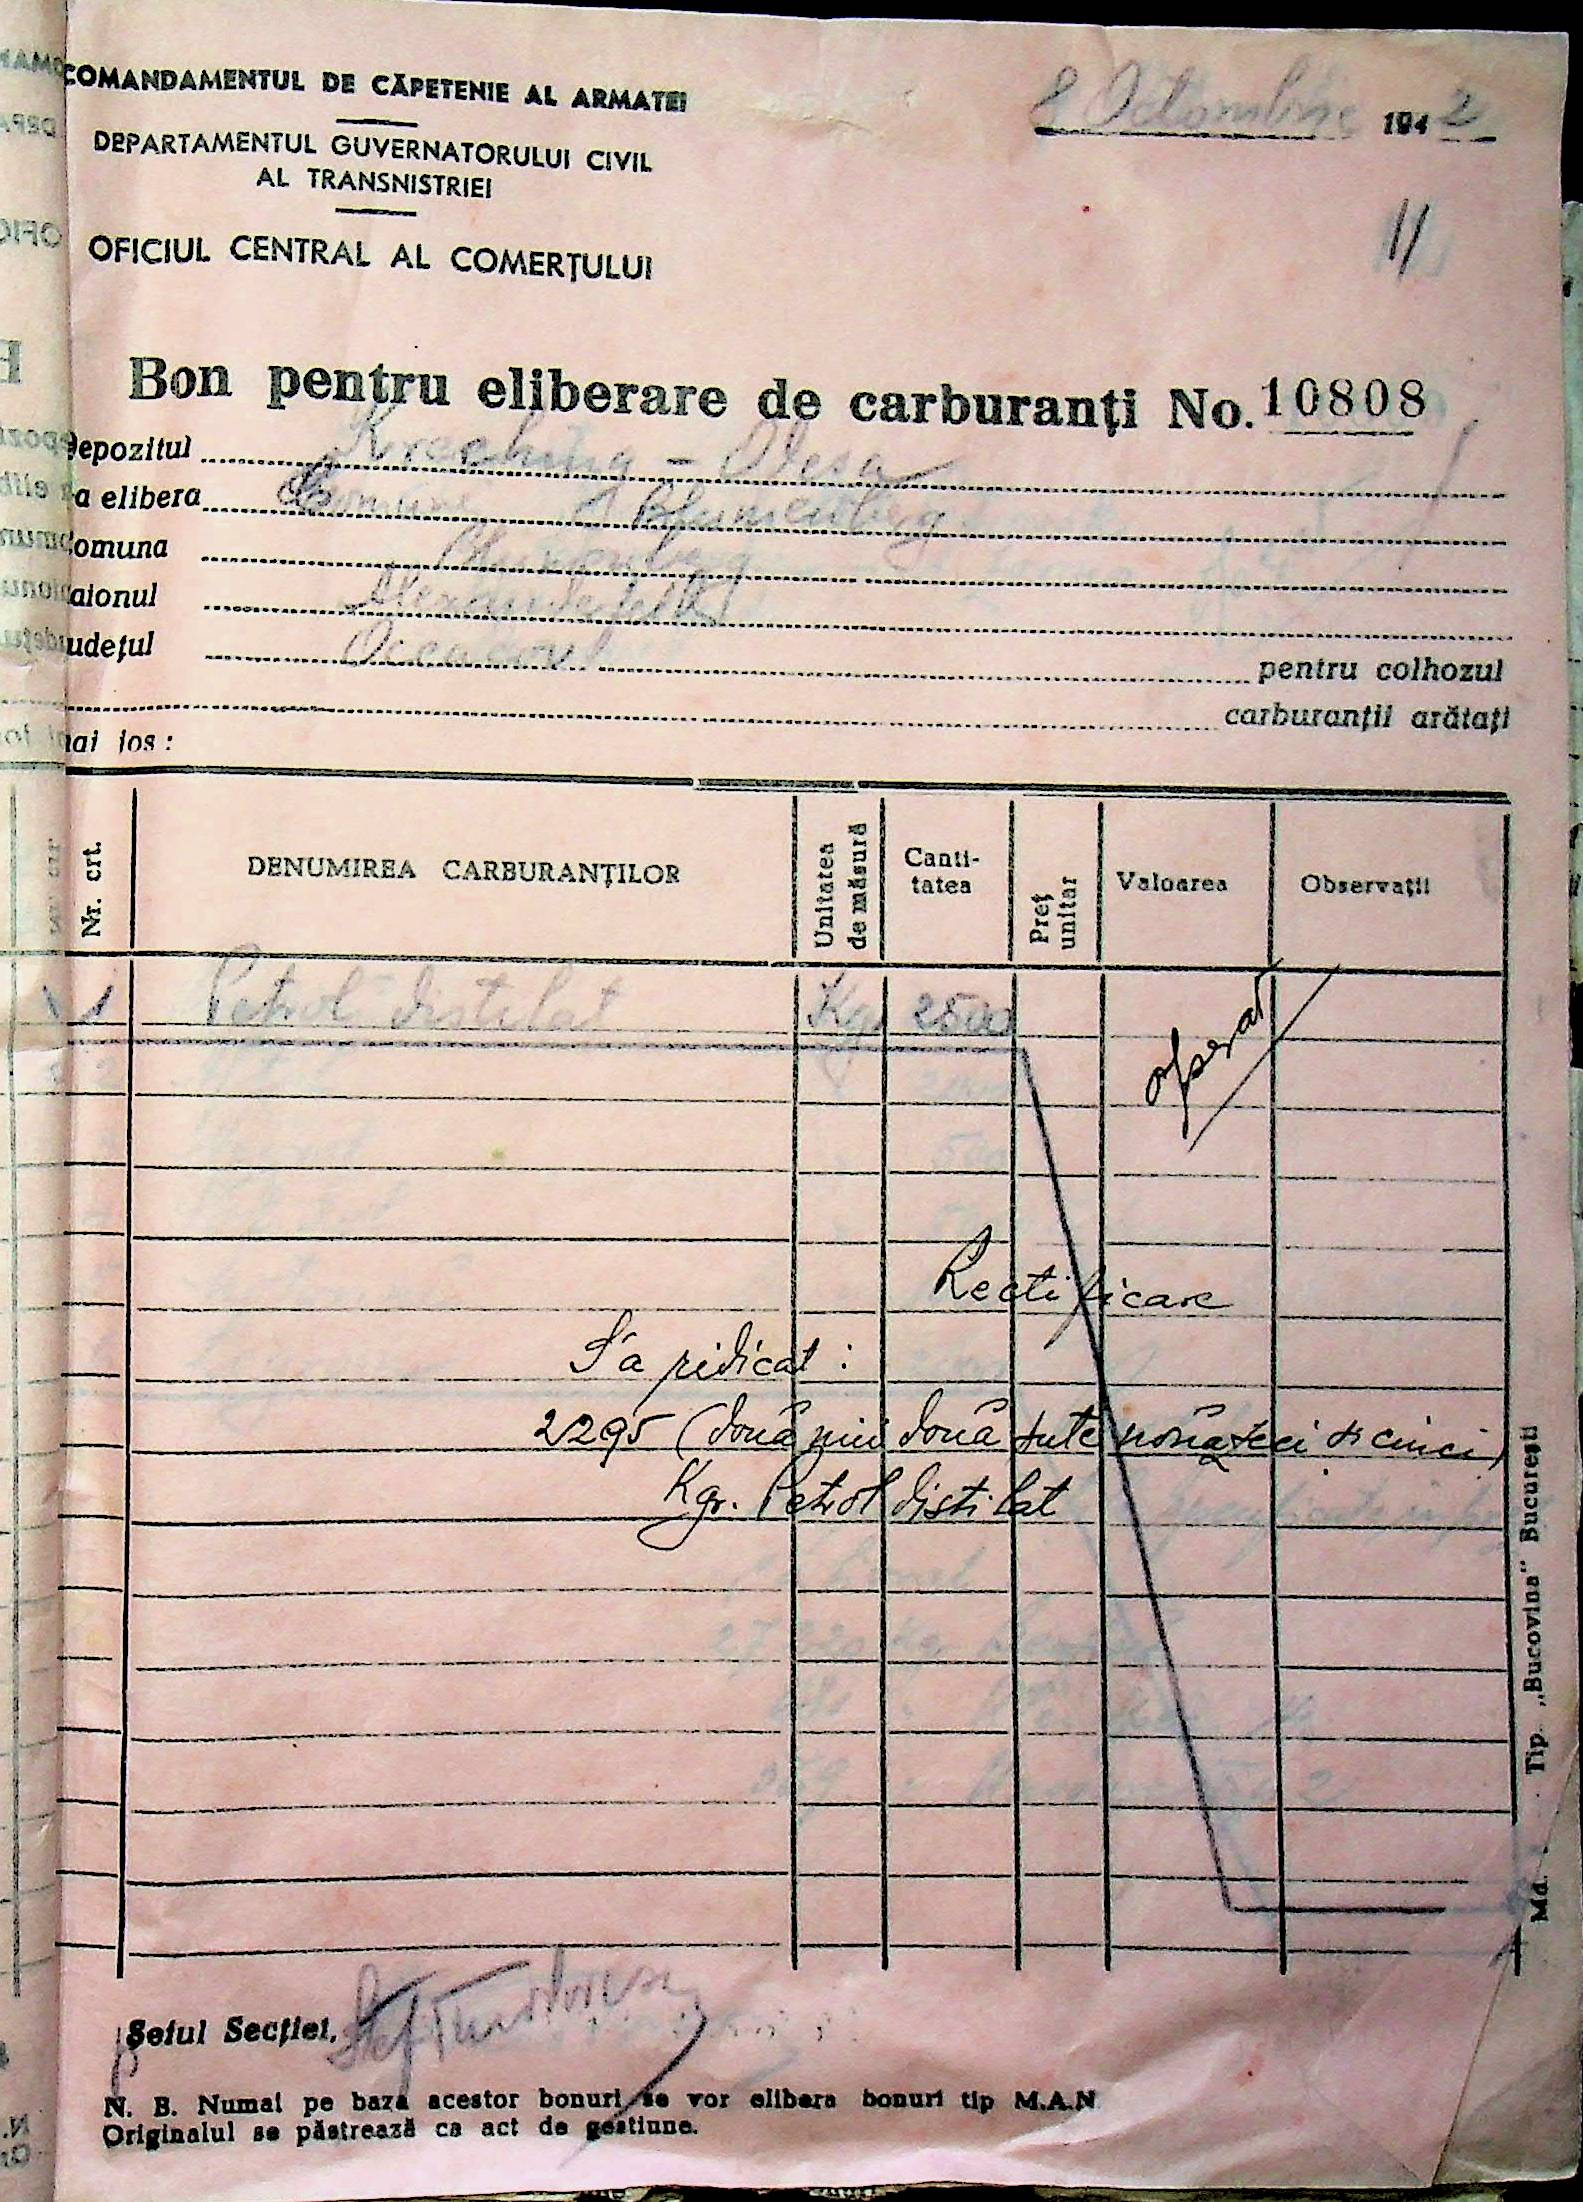 COMANDAMENTUL DE CĂPETENIE AL ARMATEI
8 Octombrie 1942
DEPARTAMENTUL GUVERNATORULUI CIVIL
AL TRANSNISTRIEI
11
OFICIUL CENTRAL AL COMERȚULUI
Bon pentru eliberare de carburanți No. 10808
Depozitul - Odesa
-a elibera Blumenberg
omuna Blumenberg
aionul Alexanderfeld
udețul Oceacov pentru colhozul
carburanții arătați
mai jos:
Nr. crt. DENUMIREA CARBURANȚILOR Unitatea de măsură Canti-tatea Preț unitar Valoarea Observații
1 Petrol distilat Kg 2500
Rectificare
S'a ridicat :
2295 (două mii două sute nouăzeci și cinci)
Kgr. Petrol distilat
Șeful Secției,
N. B. Numai pe baza acestor bonuri se vor elibera bonuri tip M.A.N
Originalul se păstrează ca act de gestiune.
Md. Tip. „Bucovina" București